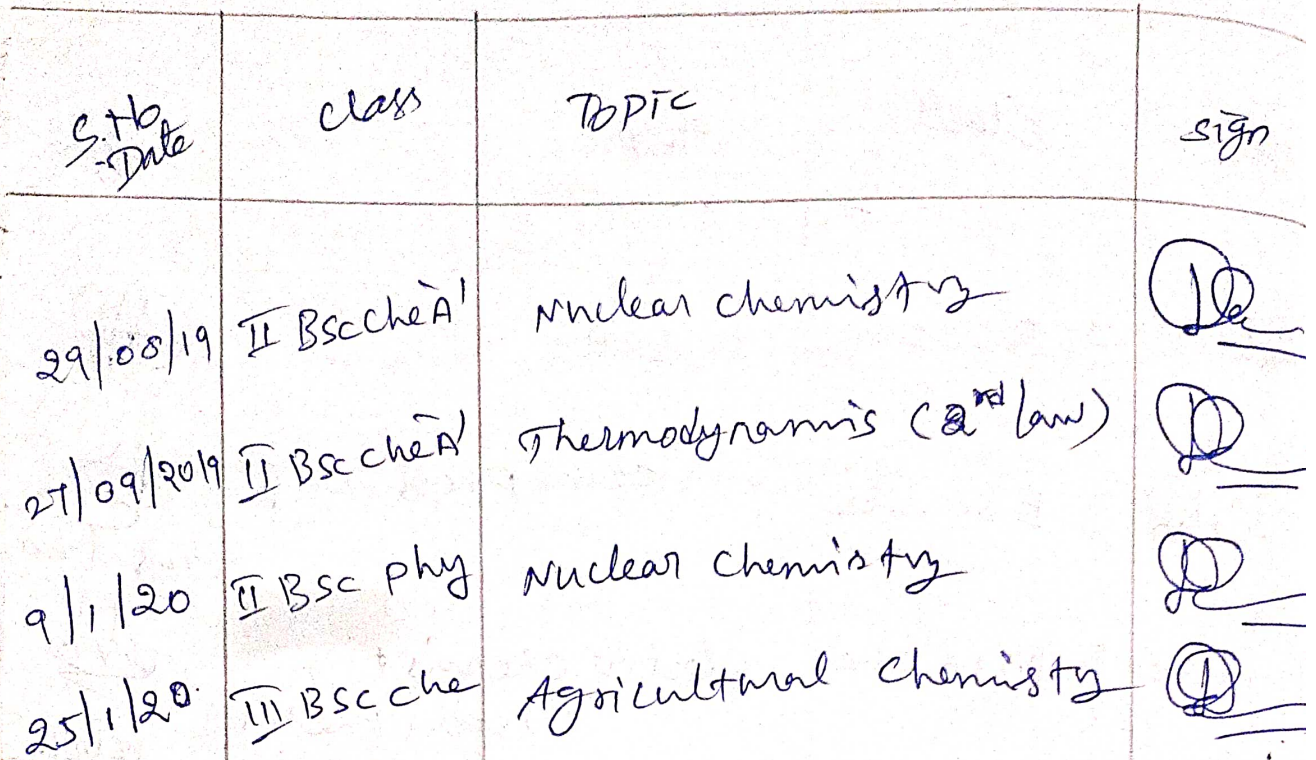 S.No Date Class Topic sign
29/08/19 II BSc Che 'A' Nuclear chemistry
27/09/2019 II BSc che 'A' Thermodynamis (2nd law)
9/1/20 II BSc phy Nuclear Chemistry
25/1/20 III BSc che Agricultural Chemisty